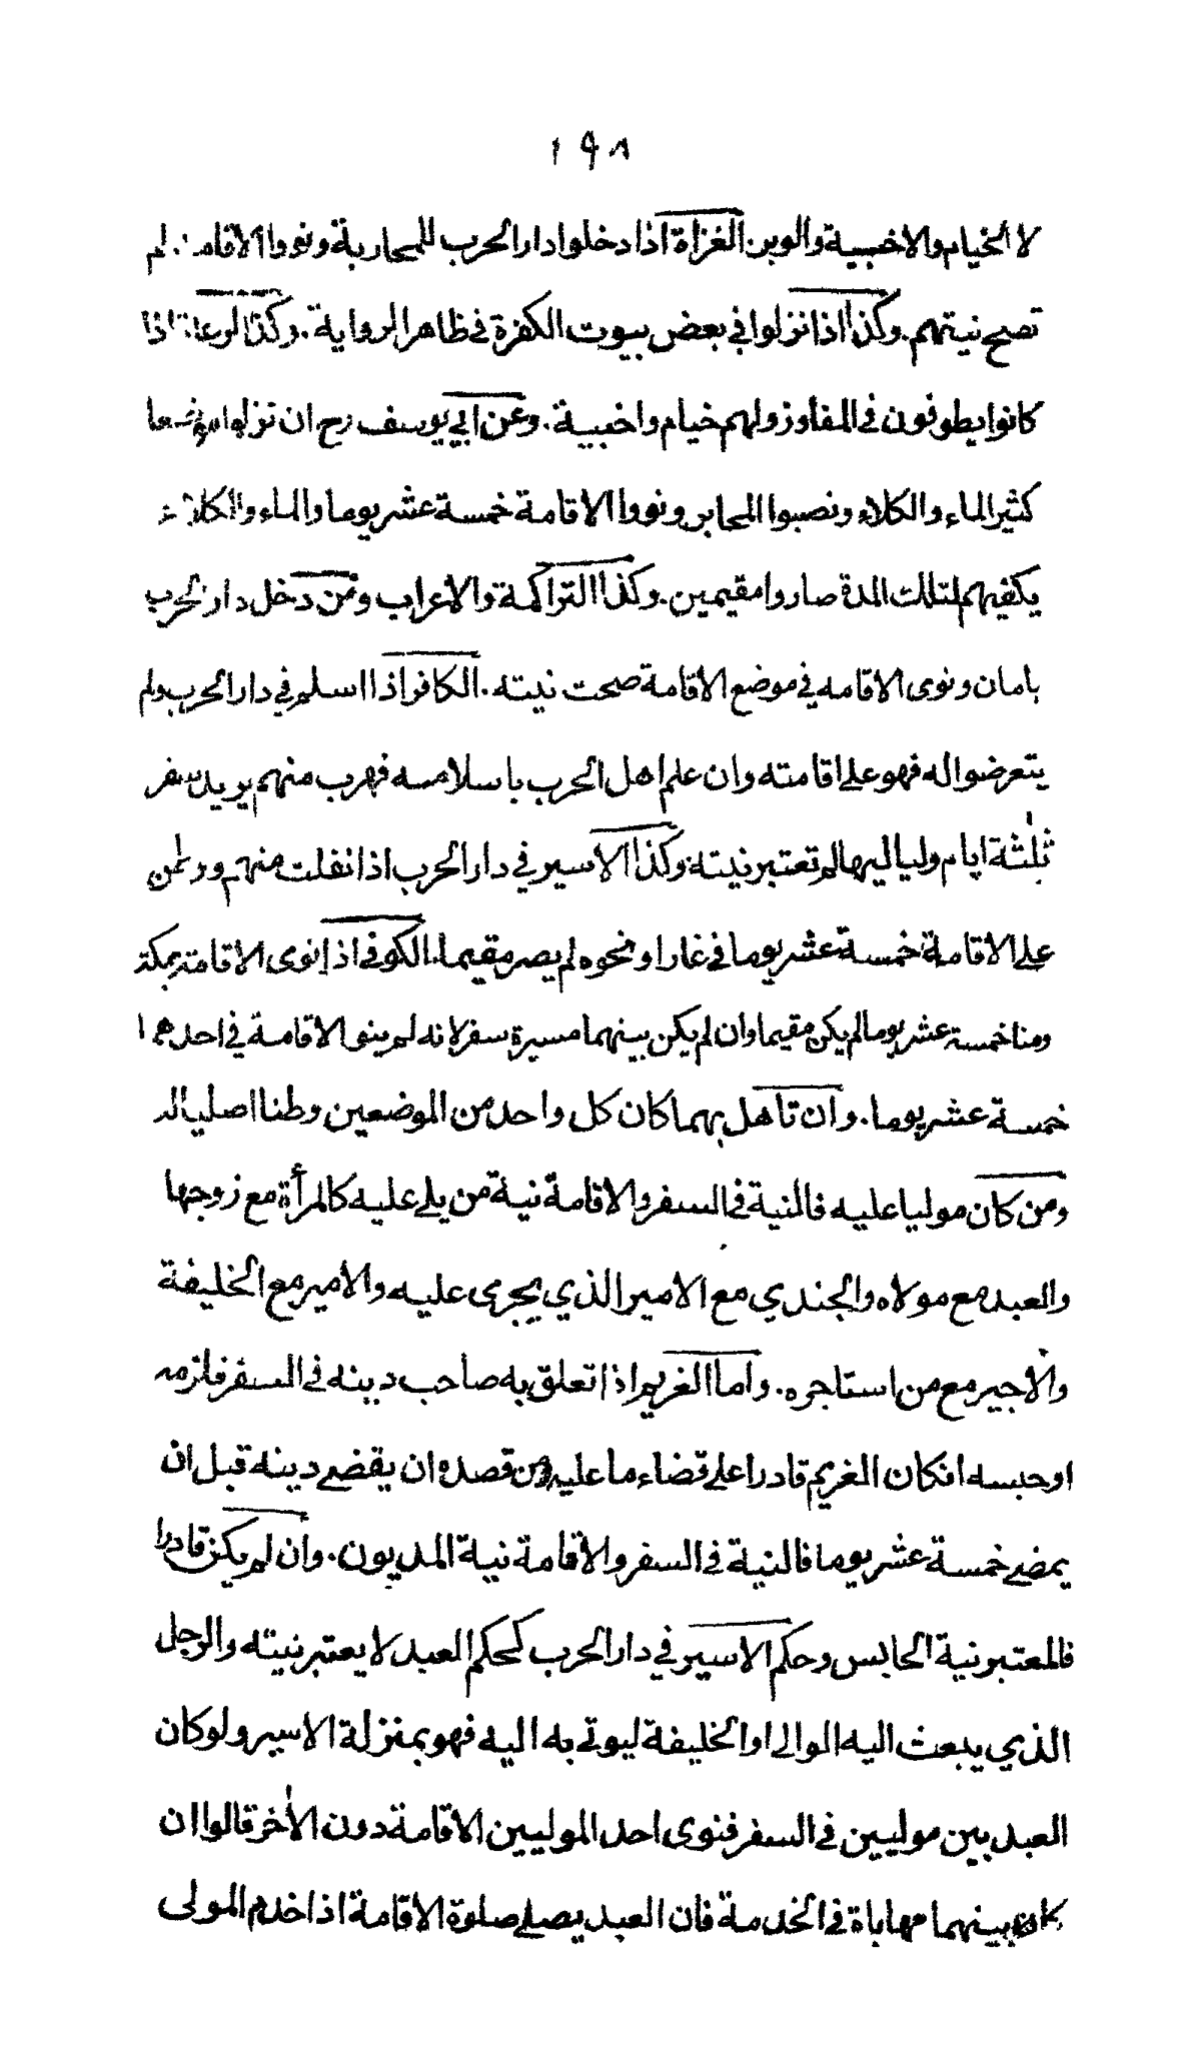 ١٩٨
لا الخيام والاخبية والوبر. الغزاة اذا دخلوا دار الحرب للمحاربة ونووا الاقامة. لم
تصح نيتهم. وكذا اذا نزلوا في بعض بيوت الكفرة في ظاهر الرواية. وكذا الرعاة اذا
كانوا يطوفون في المفاوز ولهم خيام واخبية. وعن ابي يوسف رح ان نزلوا موضعا
كثير الماء والكلاء ونصبوا المخابز ونووا الاقامة خمسة عشر يوما والماء والكلاء
يكفيهم لتلك المدة صاروا مقيمين. وكذا التراكمة والاعراب ومن دخل دار الحرب
بامان ونوى الاقامه في موضع الاقامة صحت نيته. الكافر اذا اسلم في دار الحرب ولم
يتعرضوا له فهو على اقامته وان علم اهل الحرب باسلامه فهرب منهم يريد سفر
ثلثة ايام ولياليها لم تعتبر نيته وكذا الاسير في دار الحرب اذا نفلت منهم ووطن
على الاقامة خمسة عشر يوما في غار او نحوه لم يصر مقيما. الكوفى اذا نوى الاقامة بمكة
ومنا خمسة عشر يوما لم يكن مقيما وان لم يكن بينهما مسيرة سفر لانه لم ينو الاقامة في احدهما
خمسة عشر يوما. وان تاهل بهما كان كل واحد من الموضعين وطنا اصليا له
ومن كان موليا عليه فالنية في السفر والاقامة نية من يلى عليه كالمرأة مع زوجها
والعبد مع مولاه والجندي مع الامير الذي يجرى عليه والامير مع الخليفة
والاجير مع من استاجره. واما الغريم اذا تعلق به صاحب دينه في السفر فلزمه
او حبسه انكان الغريم قادرا على قضاء ما عليه ومن قصده ان يقضى دينه قبل ان
يمضى خمسة عشر يوما فالنية في السفر والاقامة نية المديون. وان لم يكن قادرا
فالمعتبر نية الحابس وحكم الاسير في دار الحرب كحكم العبد لا يعتبر نيته والرجل
الذي يبعث اليه الوالى او الخليفة ليوتى به اليه فهو بمنزلة الاسير ولو كان
العبد بين موليين في السفر فنوى احد الموليين الاقامة دون الأخر قالوا ان
كان بينهما مهاياة في الخدمة فان العبد يصلى صلوة الاقامة اذا خدم المولى